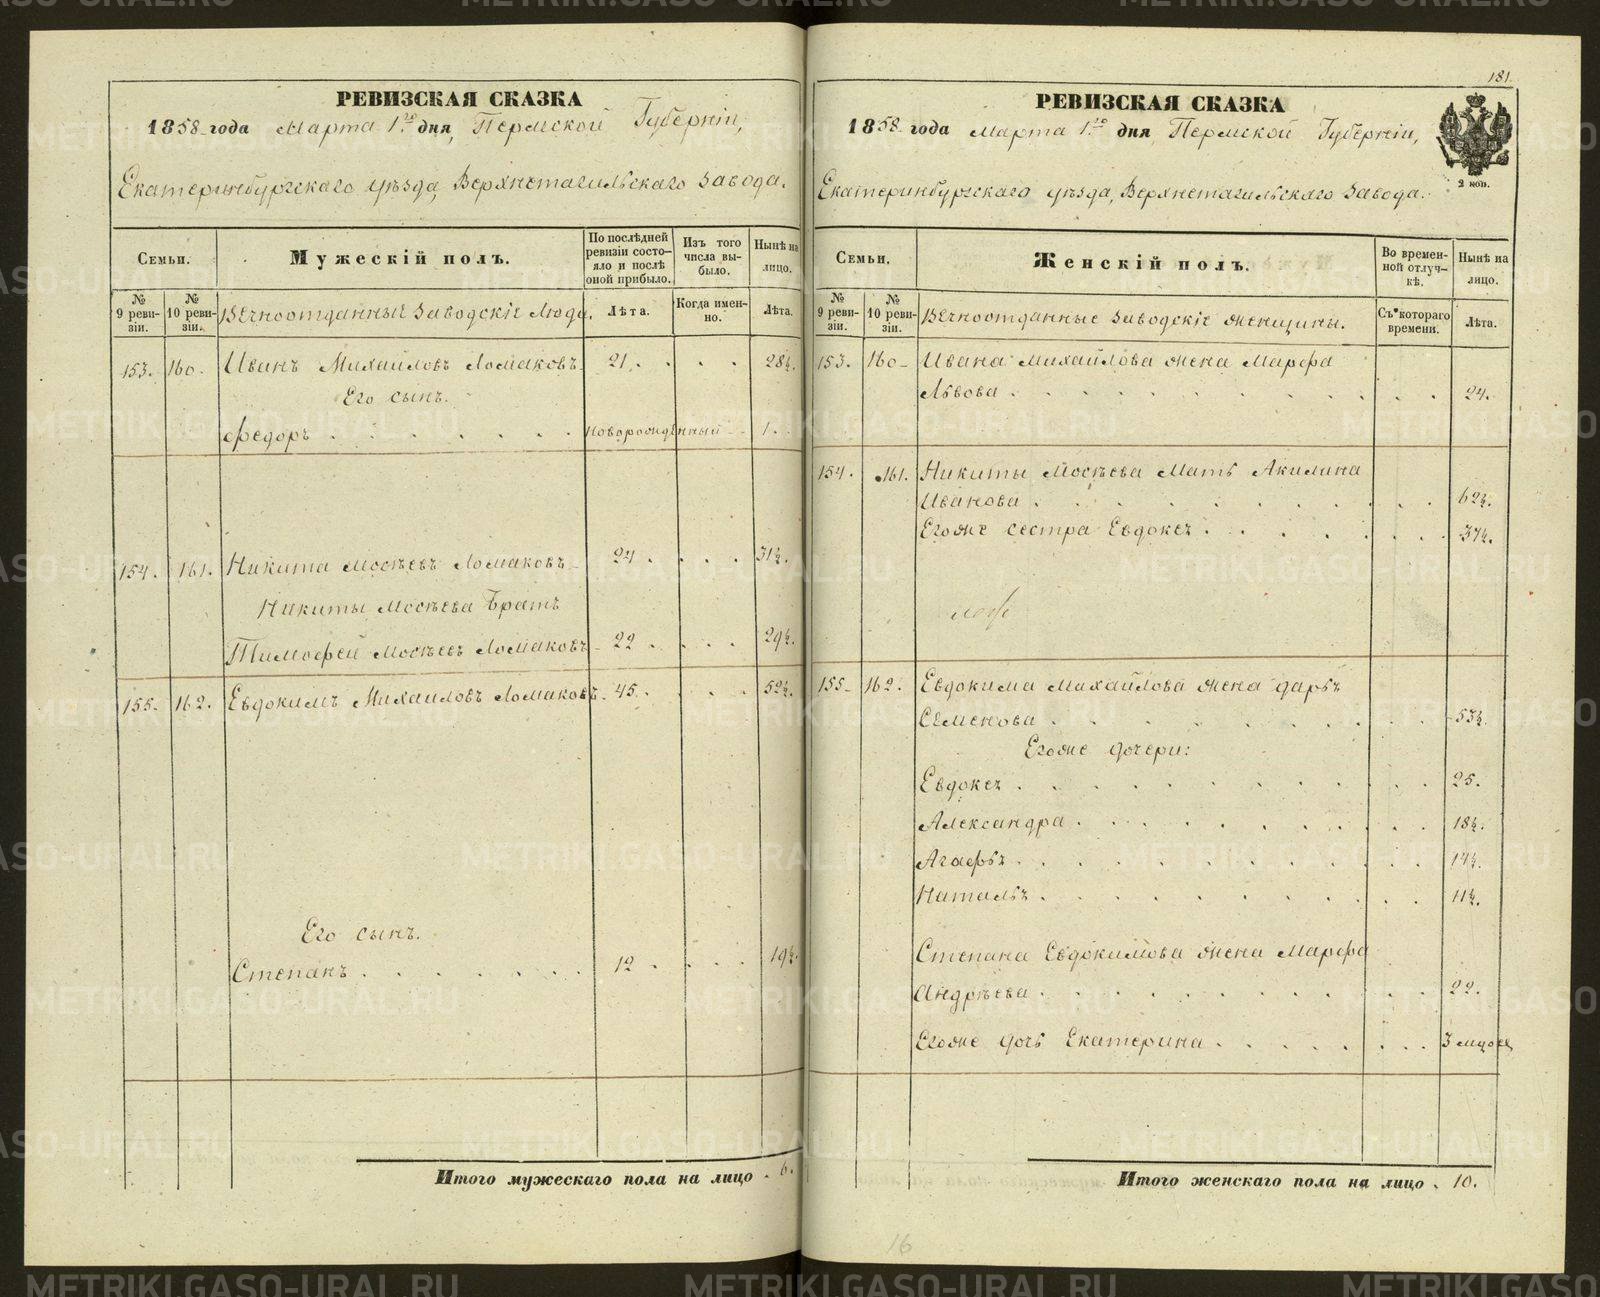 РЕВИЗСКАЯ СКАЗКА
1858 года Марта 1го дня, Пермской Губерніи,
Екатеринбургскаго уѣзда, Верхнетагильскаго завода.
Семьи.
Мужескій полъ.
По послѣдней ревизіи состояло и послѣ оной прибыло.
Изъ того числа выбыло.
Нынѣ на лицо.
№ 9 ревизіи.
№ 10 ревизіи.
Вѣчноотданныя заводскіе люди.
Лѣта.
Когда именно.
Лѣта.
153. 160. Иванъ Михайловъ Ломаковъ 21. 28½.
Его сынъ.
Федоръ новорожденный 1.
154. 161. Никита Мосѣевъ Ломаковъ 24. 31½.
Никиты Мосѣева братъ
Тимофей Мосѣевъ Ломаковъ 22. 29½.
155. 162. Евдокимъ Михайловъ Ломаковъ 45. 52½.
Его сынъ.
Степанъ 12. 19½.
Итого мужескаго пола на лицо 6.
181.
РЕВИЗСКАЯ СКАЗКА
1858 года Марта 1го дня Пермской Губерніи,
Екатеринбургскаго уѣзда, Верхнетагильскаго завода.
2 коп.
Семьи.
Женскій полъ.
Во временной отлучкѣ.
Нынѣ на лицо.
№ 9 ревизіи.
№ 10 ревизіи.
Вѣчноотданные заводскіе женщины.
Съ котораго времени.
Лѣта.
153. 160. Ивана Михайлова жена Марфа
Львова 24.
154. 161. Никиты Мосѣева Мать Акилина
Иванова 62½.
Егоже сестра Евдокея 37½.
155. 162. Евдокима Михайлова жена Дарья
Семенова 53½.
Егоже дочери:
Евдокея 25.
Александра 18½.
Агафья 14½.
Наталья 11½.
Степана Евдокимова жена Марфа
Андрѣева 22.
Егоже дочь Екатерина 3 мѣсяц
Итого женскаго пола на лицо 10.
16
METRIKI.GASO-URAL.RU